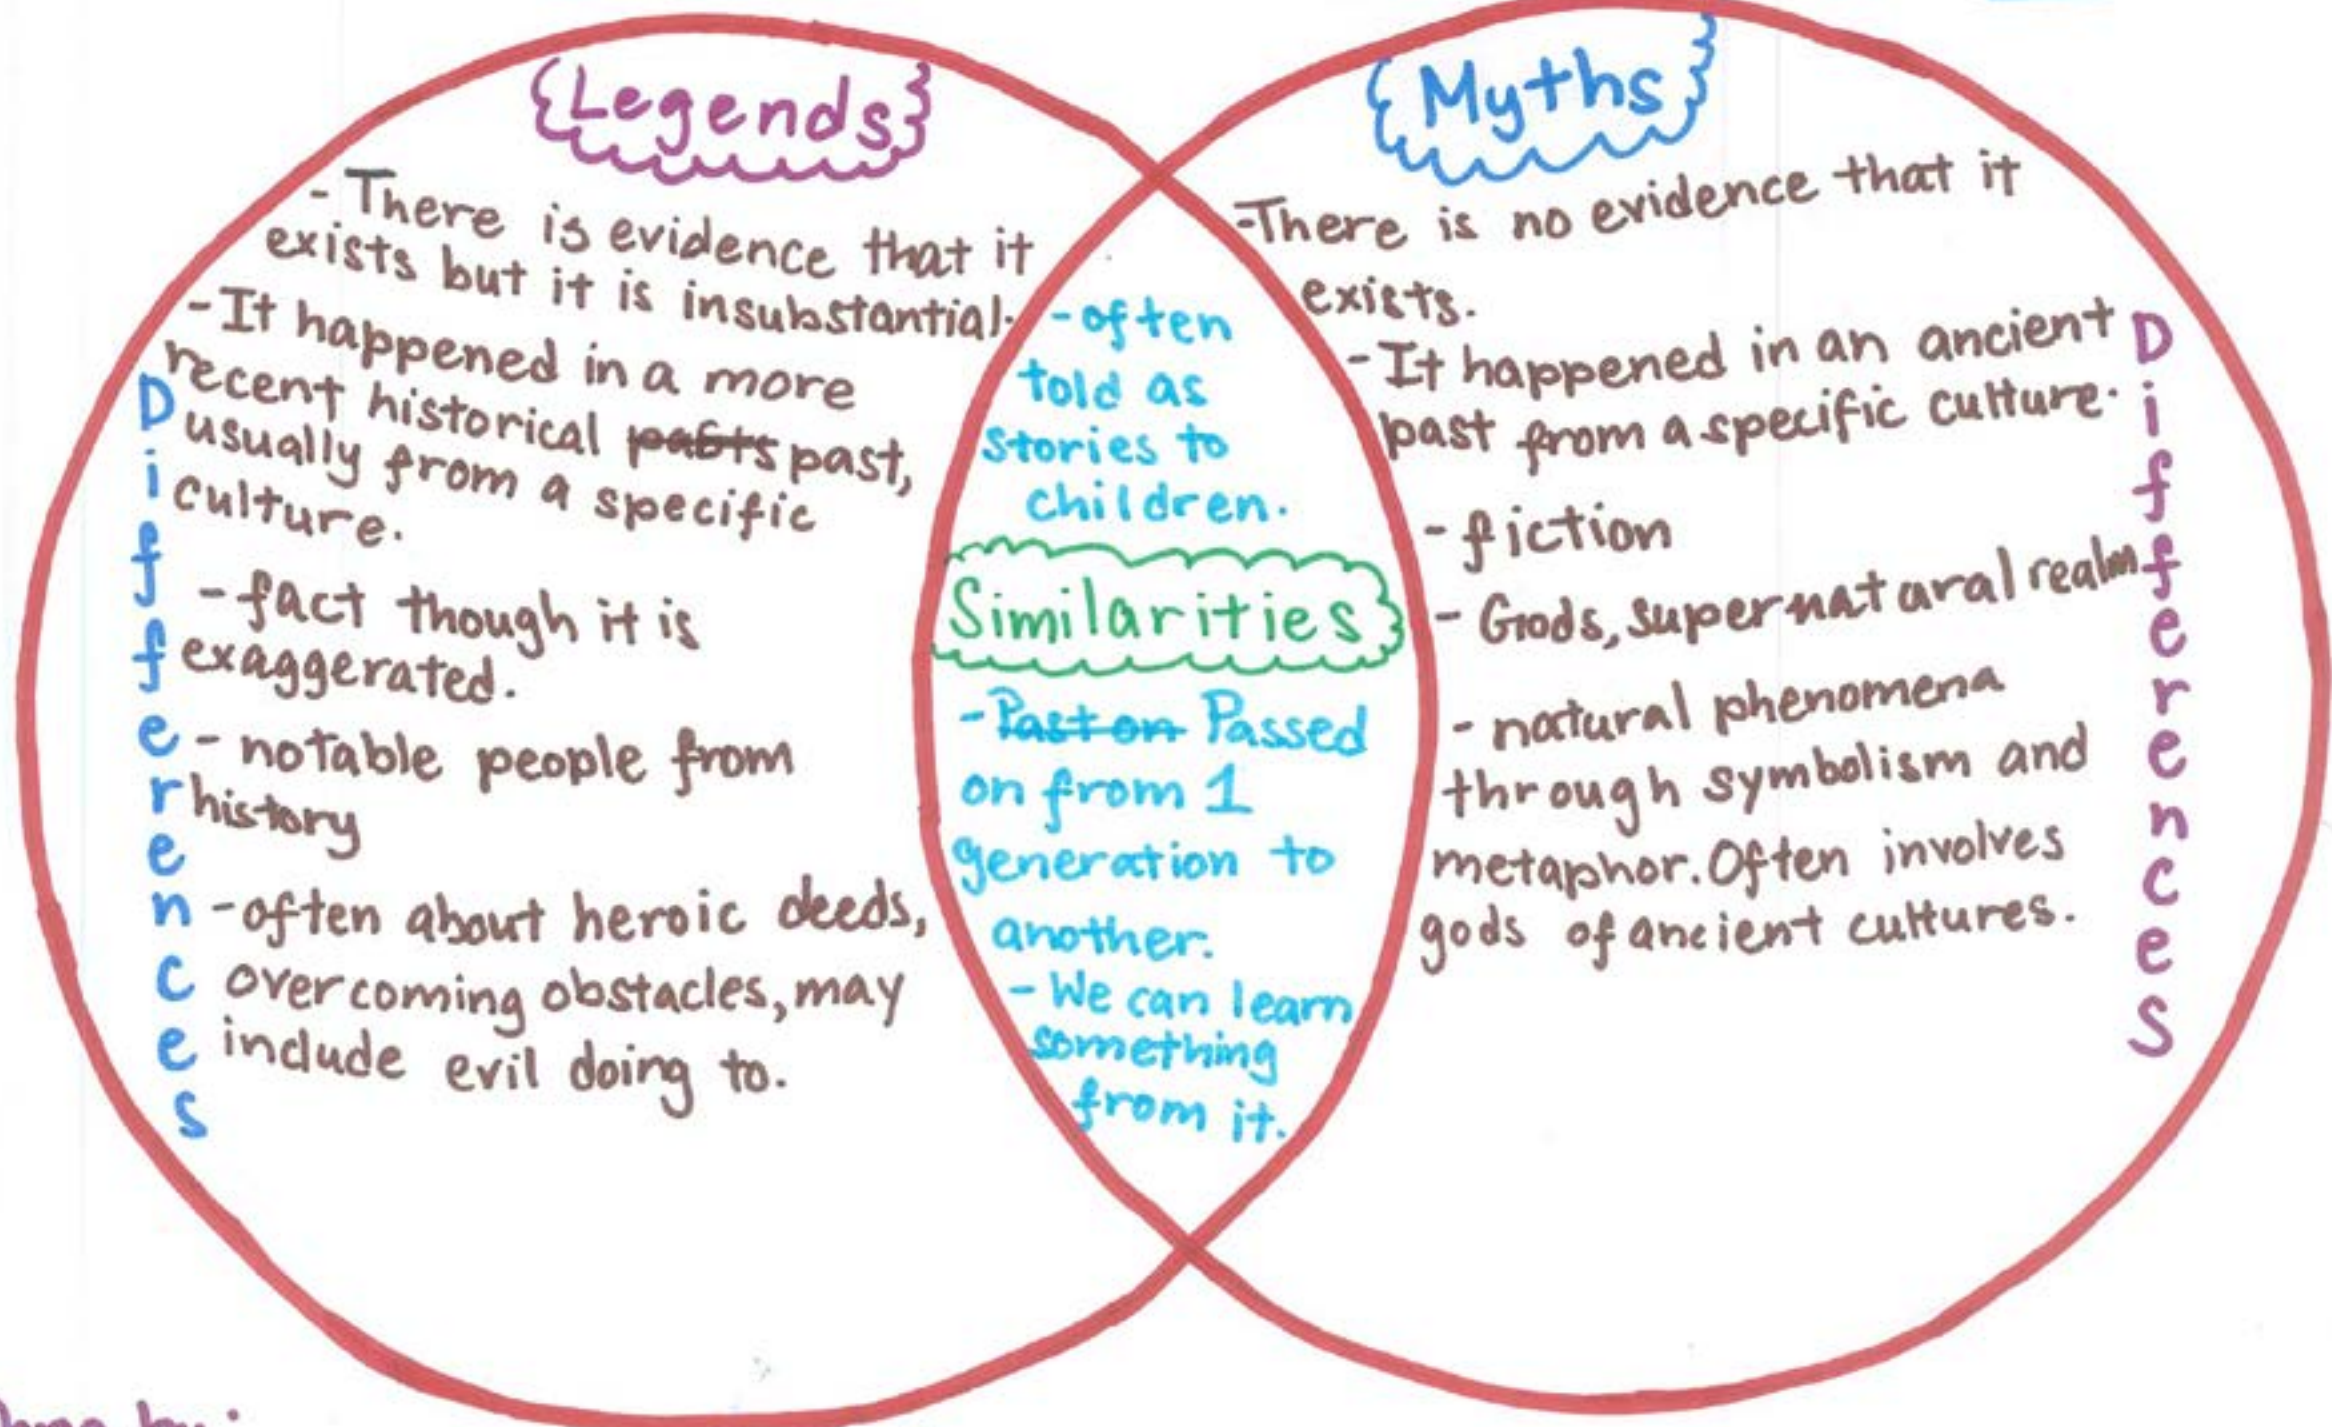 Legends
- There is evidence that it
exists but it is insubstantial.
- It happened in a more
recent historical pasts past,
usually from a specific
culture.
- fact though it is
exaggerated.
- notable people from
history
- often about heroic deeds,
overcoming obstacles, may
include evil doing to.
Differences
- often
told as
stories to
children.
Similarities
- Past on Passed
on from 1
generation to
another.
- We can learn
something
from it.
Myths
- There is no evidence that it
exists.
- It happened in an ancient
past from a specific culture.
- fiction
- Gods, supernatural realm
- natural phenomena
through symbolism and
metaphor. Often involves
gods of ancient cultures.
Differences
by: